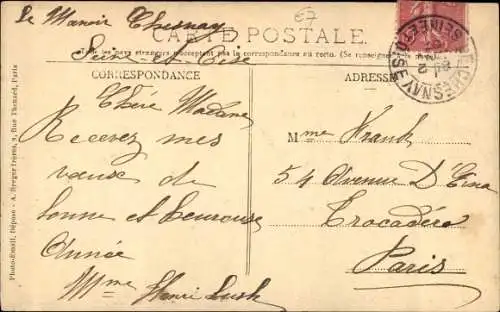 Le Manoir Chesnay
67
CARTE POSTALE
Seine-et-Oise
Tous les pays étrangers n'acceptent pas la correspondance au recto. (Se renseigner
CORRESPONDANCE
ADRESSE
LE CHESNAY
SEINE-ET-OISE
Chère Madame
Recevez mes
vœux de
bonne et heureuse
Année
Mme Henri
Mme Frank
54 Avenue D'Iéna
Trocadéro
Paris
Photo-Émail, Dépose - A. Breger frères, 9, Rue Thénard, Paris